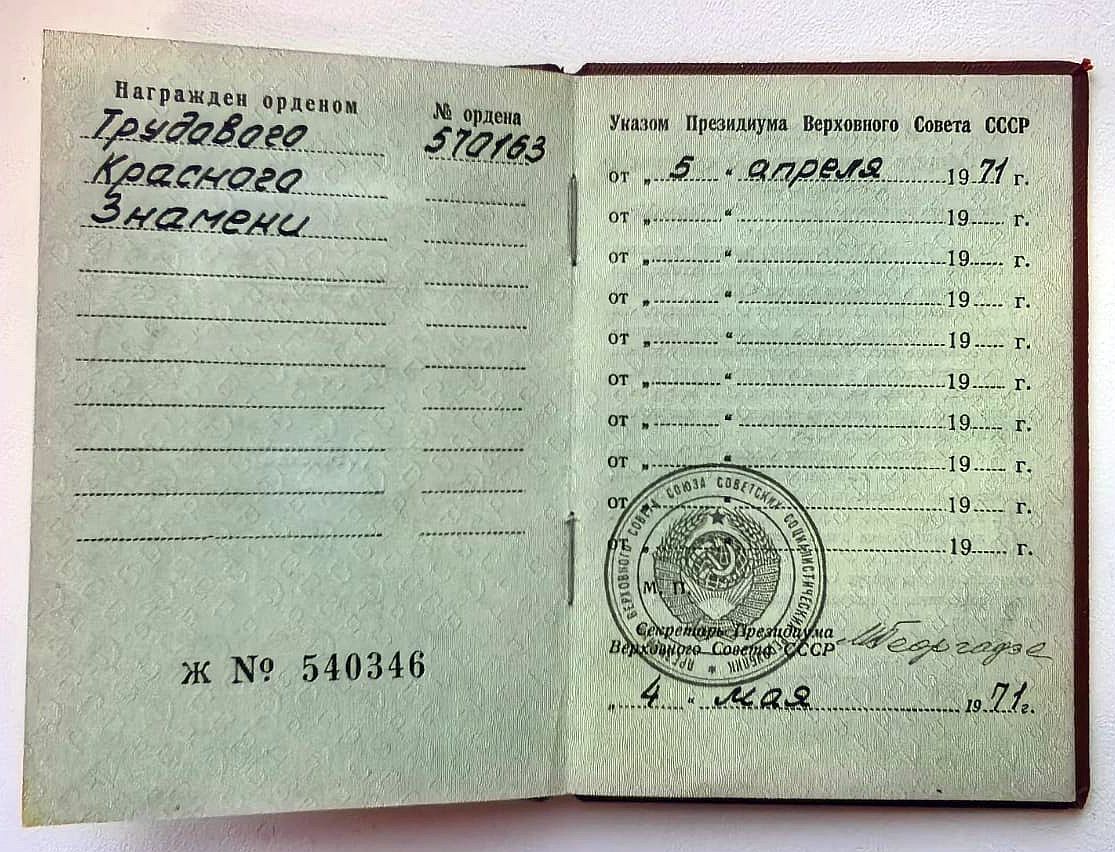 Награжден орденом
№ ордена
Трудового
570163
Красного
Знамени
Ж № 540346
Указом Президиума Верховного Совета СССР
от „ 5 “ апреля 1971 г.
от „ “ 19 г.
от „ “ 19 г.
от „ “ 19 г.
от „ “ 19 г.
от „ “ 19 г.
от „ “ 19 г.
от „ “ 19 г.
от „ “ 19 г.
от „ “ 19 г.
М. П.
ПРЕЗИДИУМ ВЕРХОВНОГО СОВЕТА СОЮЗА СОВЕТСКИХ СОЦИАЛИСТИЧЕСКИХ РЕСПУБЛИК *
Секретарь Президиума
Верховного Совета СССР
МГеоргадзе
„ 4 “ мая 1971 г.